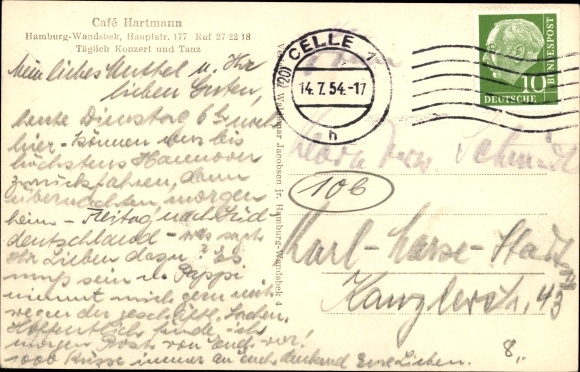 Café Hartmann
Hamburg-Wandsbek, Hauptstr. 177 Ruf 27 22 18
Täglich Konzert und Tanz
Mein liebes Muttel u. Ihr
lieben Ersten,
heute Dienstag 6 h noch
hier - können wir bis
höchstens Hannover
zurückfahren, dann
übernachten, morgen
heim - Freitag nach Süd
deutschland - was sagt
Ihr Lieben dazu? Es
muß sein u. Pappi
nimmt mich gern mit
wegen der geschäftl. Sachen.
Hoffentlich finde ich
morgen Post von Euch vor!
1000 Küsse immer an euch denkend Eure Lieben.
Waldemar Jacobsen jr. Hamburg-Wandsbek 4
(20a) CELLE 1
14.7.54.-17
h
DEUTSCHE BUNDESPOST
10
Schmidt
10b
Karl-Marx-Stadt
Kanzlerstr. 43
8.-